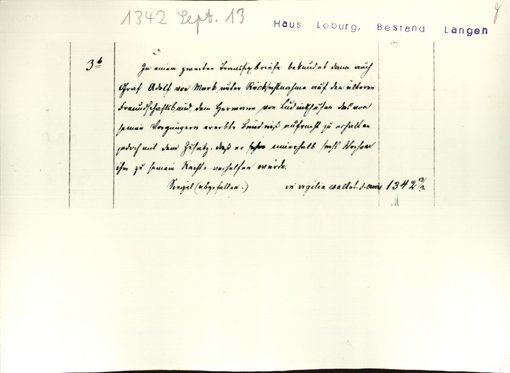 1342 Sept. 13
Haus Loburg, Bestand Langen
3b
In einem zweiten Transfixbriefe bekundet dann auch
Graf Adolf von Mark unter Rücksichtnahme auf den älteren
Freundschaftsbund, dem Hermann von Lüdinghausen das von
seinen Vorgängern ererbte Bündniß aufrecht zu erhalten
jedoch mit dem Zusatz, daß er innerhalb sechs Wochen
ihm zu seinem Rechte verhelfen werde.
Siegel (abgefallen.) in vigilia exaltat. s. crucis 1342 13/9